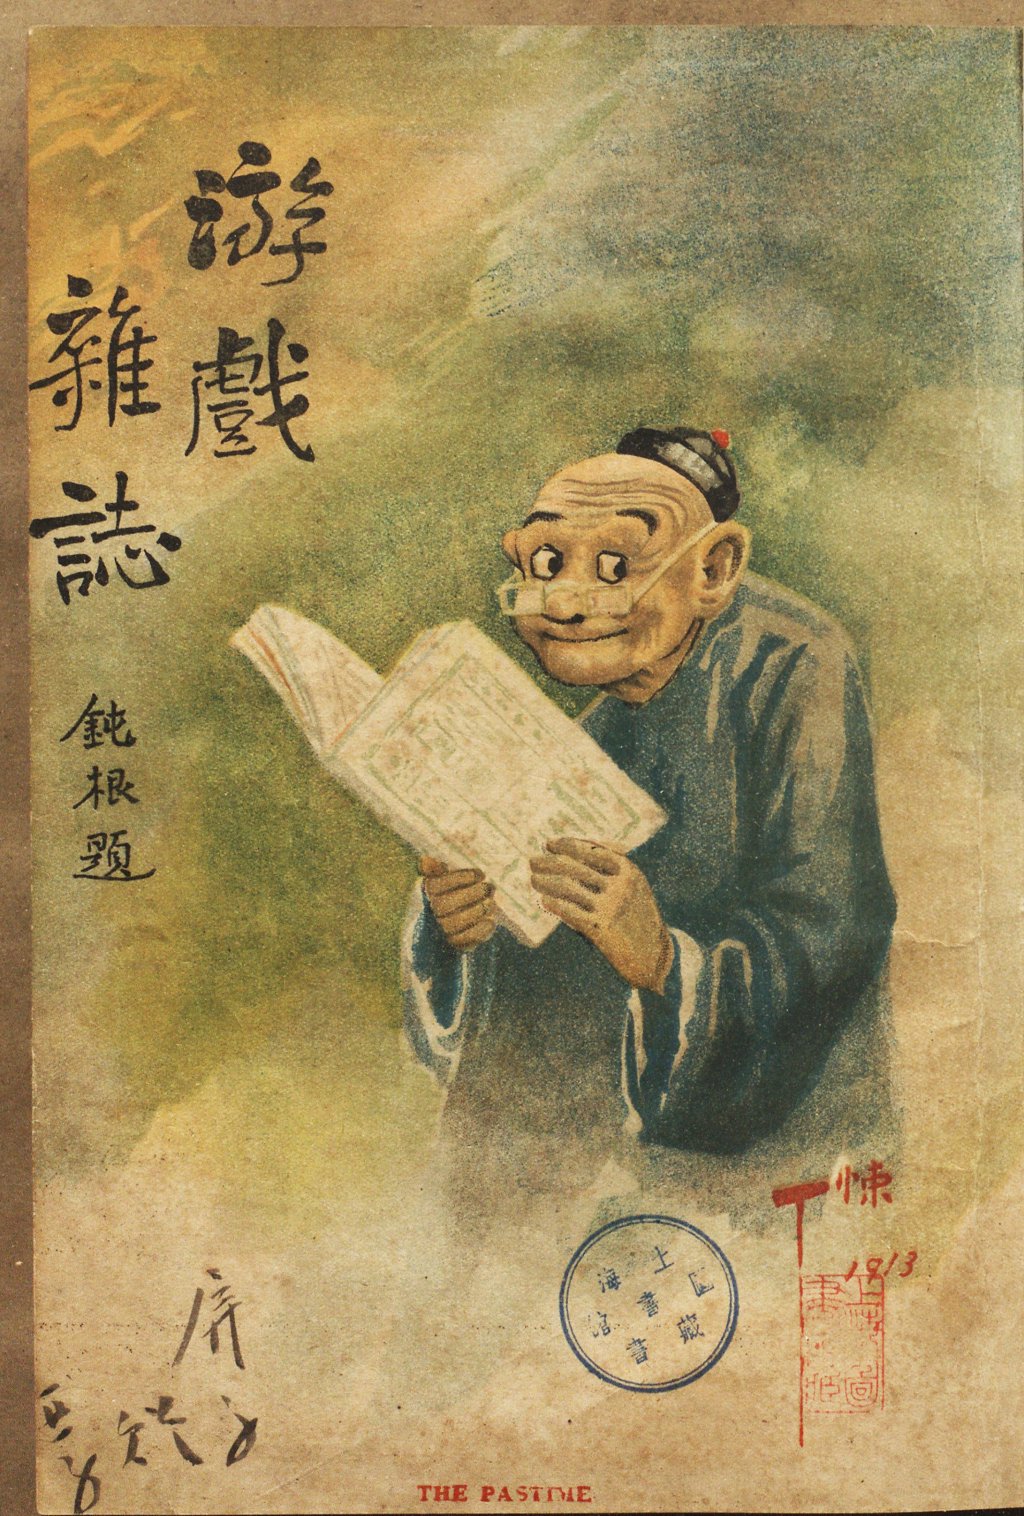 游戲
雜誌
鈍根題
悚
1913
上海圖書館藏書
THE PASTIME